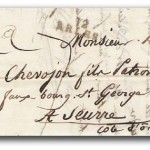 72
Monsieur
Chevojon fils Patron
faux bourg St George
A Seurre
Cote d'or